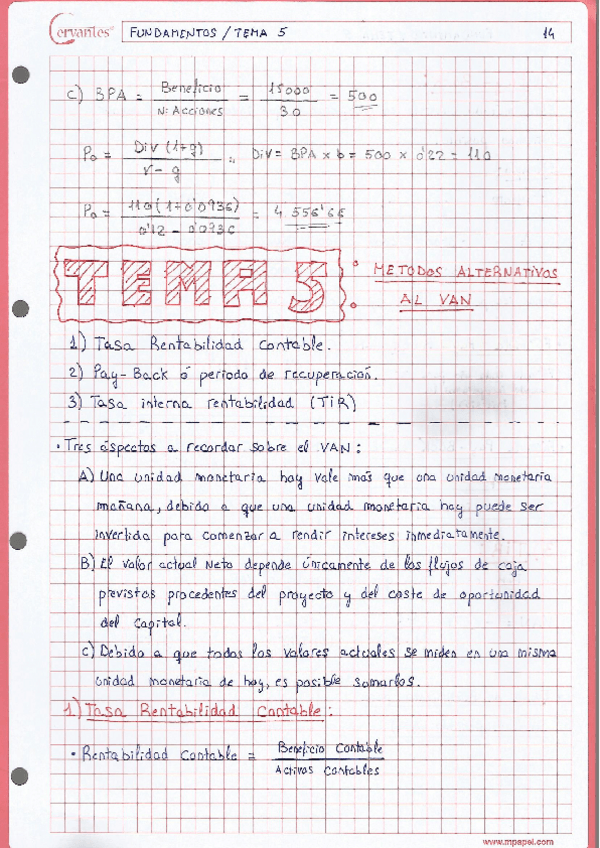 Cervantes FUNDAMENTOS / TEMA 5 14
c) BPA = Beneficio / Nº Acciones = 15000 / 30 = 500
Po = Div (1+g) / r - g , Div = BPA x b = 500 x 0'22 = 110
Po = 110 (1+0'0936) / 0'12 - 0'0936 = 4 556'66
TEMA 5 : METODOS ALTERNATIVOS
AL VAN
1) Tasa Rentabilidad Contable.
2) Pay-Back ó periodo de recuperación.
3) Tasa interna rentabilidad (TIR)
· Tres aspectos a recordar sobre el VAN :
A) Una unidad monetaria hoy vale más que una unidad monetaria
mañana, debido a que una unidad monetaria hoy puede ser
invertida para comenzar a rendir intereses inmediatamente.
B) El valor actual Neto depende únicamente de los flujos de caja
previstos procedentes del proyecto y del coste de oportunidad
del Capital.
c) Debido a que todos los valores actuales se miden en una misma
unidad monetaria de hoy, es posible sumarlos.
1) Tasa Rentabilidad Contable :
· Rentabilidad Contable = Beneficio Contable / Activos Contables
www.mpapel.com